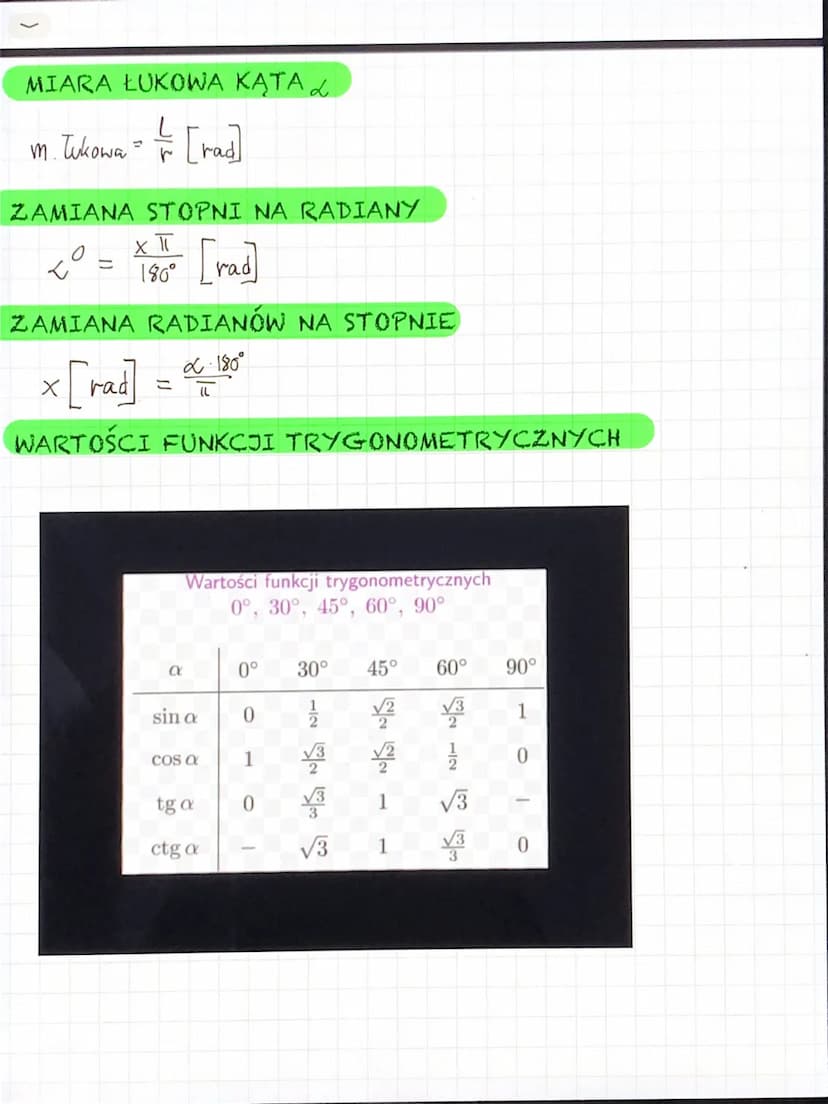 MIARA ŁUKOWA KĄTA α
m. łukowa = L/r [rad]
ZAMIANA STOPNI NA RADIANY
α° = xπ/180° [rad]
ZAMIANA RADIANÓW NA STOPNIE
x [rad] = α·180°/π
WARTOŚCI FUNKCJI TRYGONOMETRYCZNYCH
Wartości funkcji trygonometrycznych
0°, 30°, 45°, 60°, 90°
α 0° 30° 45° 60° 90°
sin α 0 1/2 √2/2 √3/2 1
cos α 1 √3/2 √2/2 1/2 0
tg α 0 √3/3 1 √3 −
ctg α − √3 1 √3/3 0